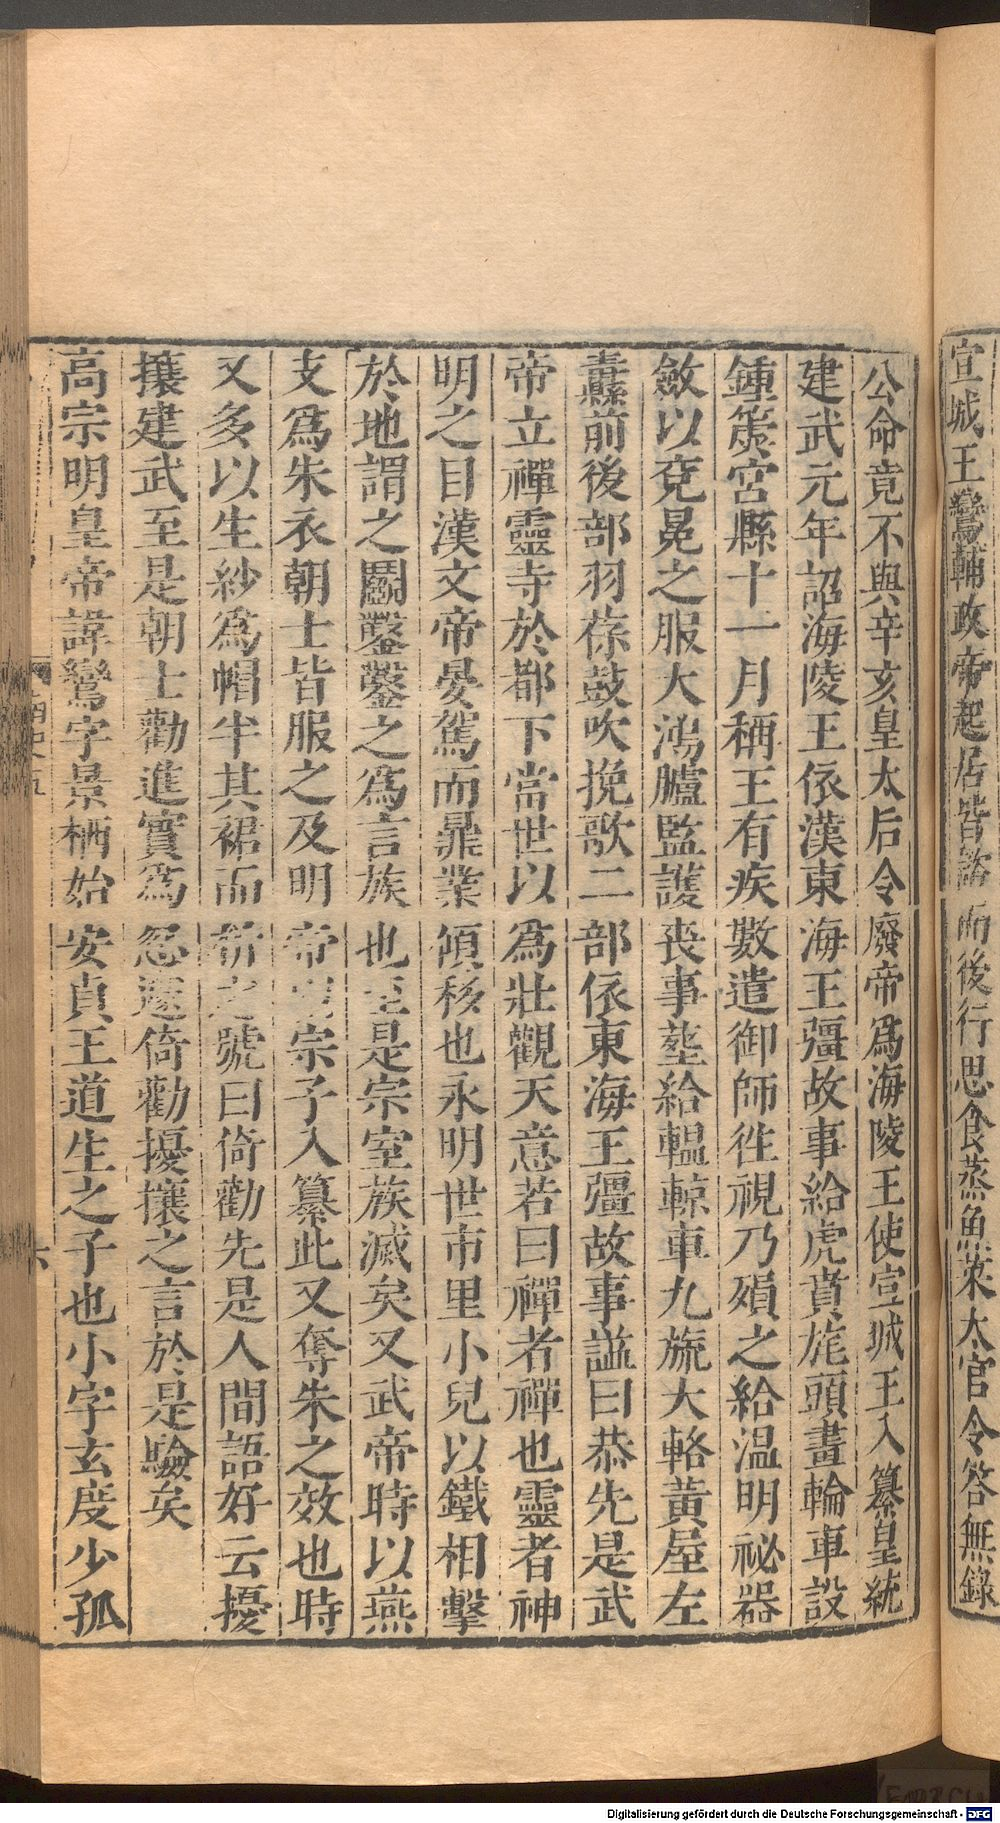 宣城王鸞輔政帝起居皆諮而後行思食蒸魚菜太官令答無錄
公命竟不與辛亥皇太后令廢帝爲海陵王使宣城王入纂皇統
建武元年詔海陵王依漢東海王彊故事給虎賁旄頭畫輪車設
鍾簴宮縣十一月稱王有疾數遣御師往視乃殞之給温明祕器
斂以兗冕之服大鴻臚監護喪事塟給轀輬車九旒大輅黃屋左
纛前後部羽葆鼓吹挽歌二部依東海王彊故事謚曰恭先是武
帝立禪靈寺於都下當世以爲壯觀天意若曰禪者禪也靈者神
明之目漢文帝晏駕而鼎業傾移也永明世市里小兒以鐵相擊
於地謂之鬭鑿鑿之爲言族也至是宗室族滅矣又武帝時以燕
支爲朱衣朝士皆服之及明帝以宗子入纂此又奪朱之效也時
又多以生紗爲帽半其裙而析之號曰倚勸先是人間語好云擾
攘建武至是朝士勸進實爲忽遽倚勸擾攘之言於是驗矣
高宗明皇帝諱鸞字景栖始安貞王道生之子也小字玄度少孤
六
Digitalisierung gefördert durch die Deutsche Forschungsgemeinschaft - DFG